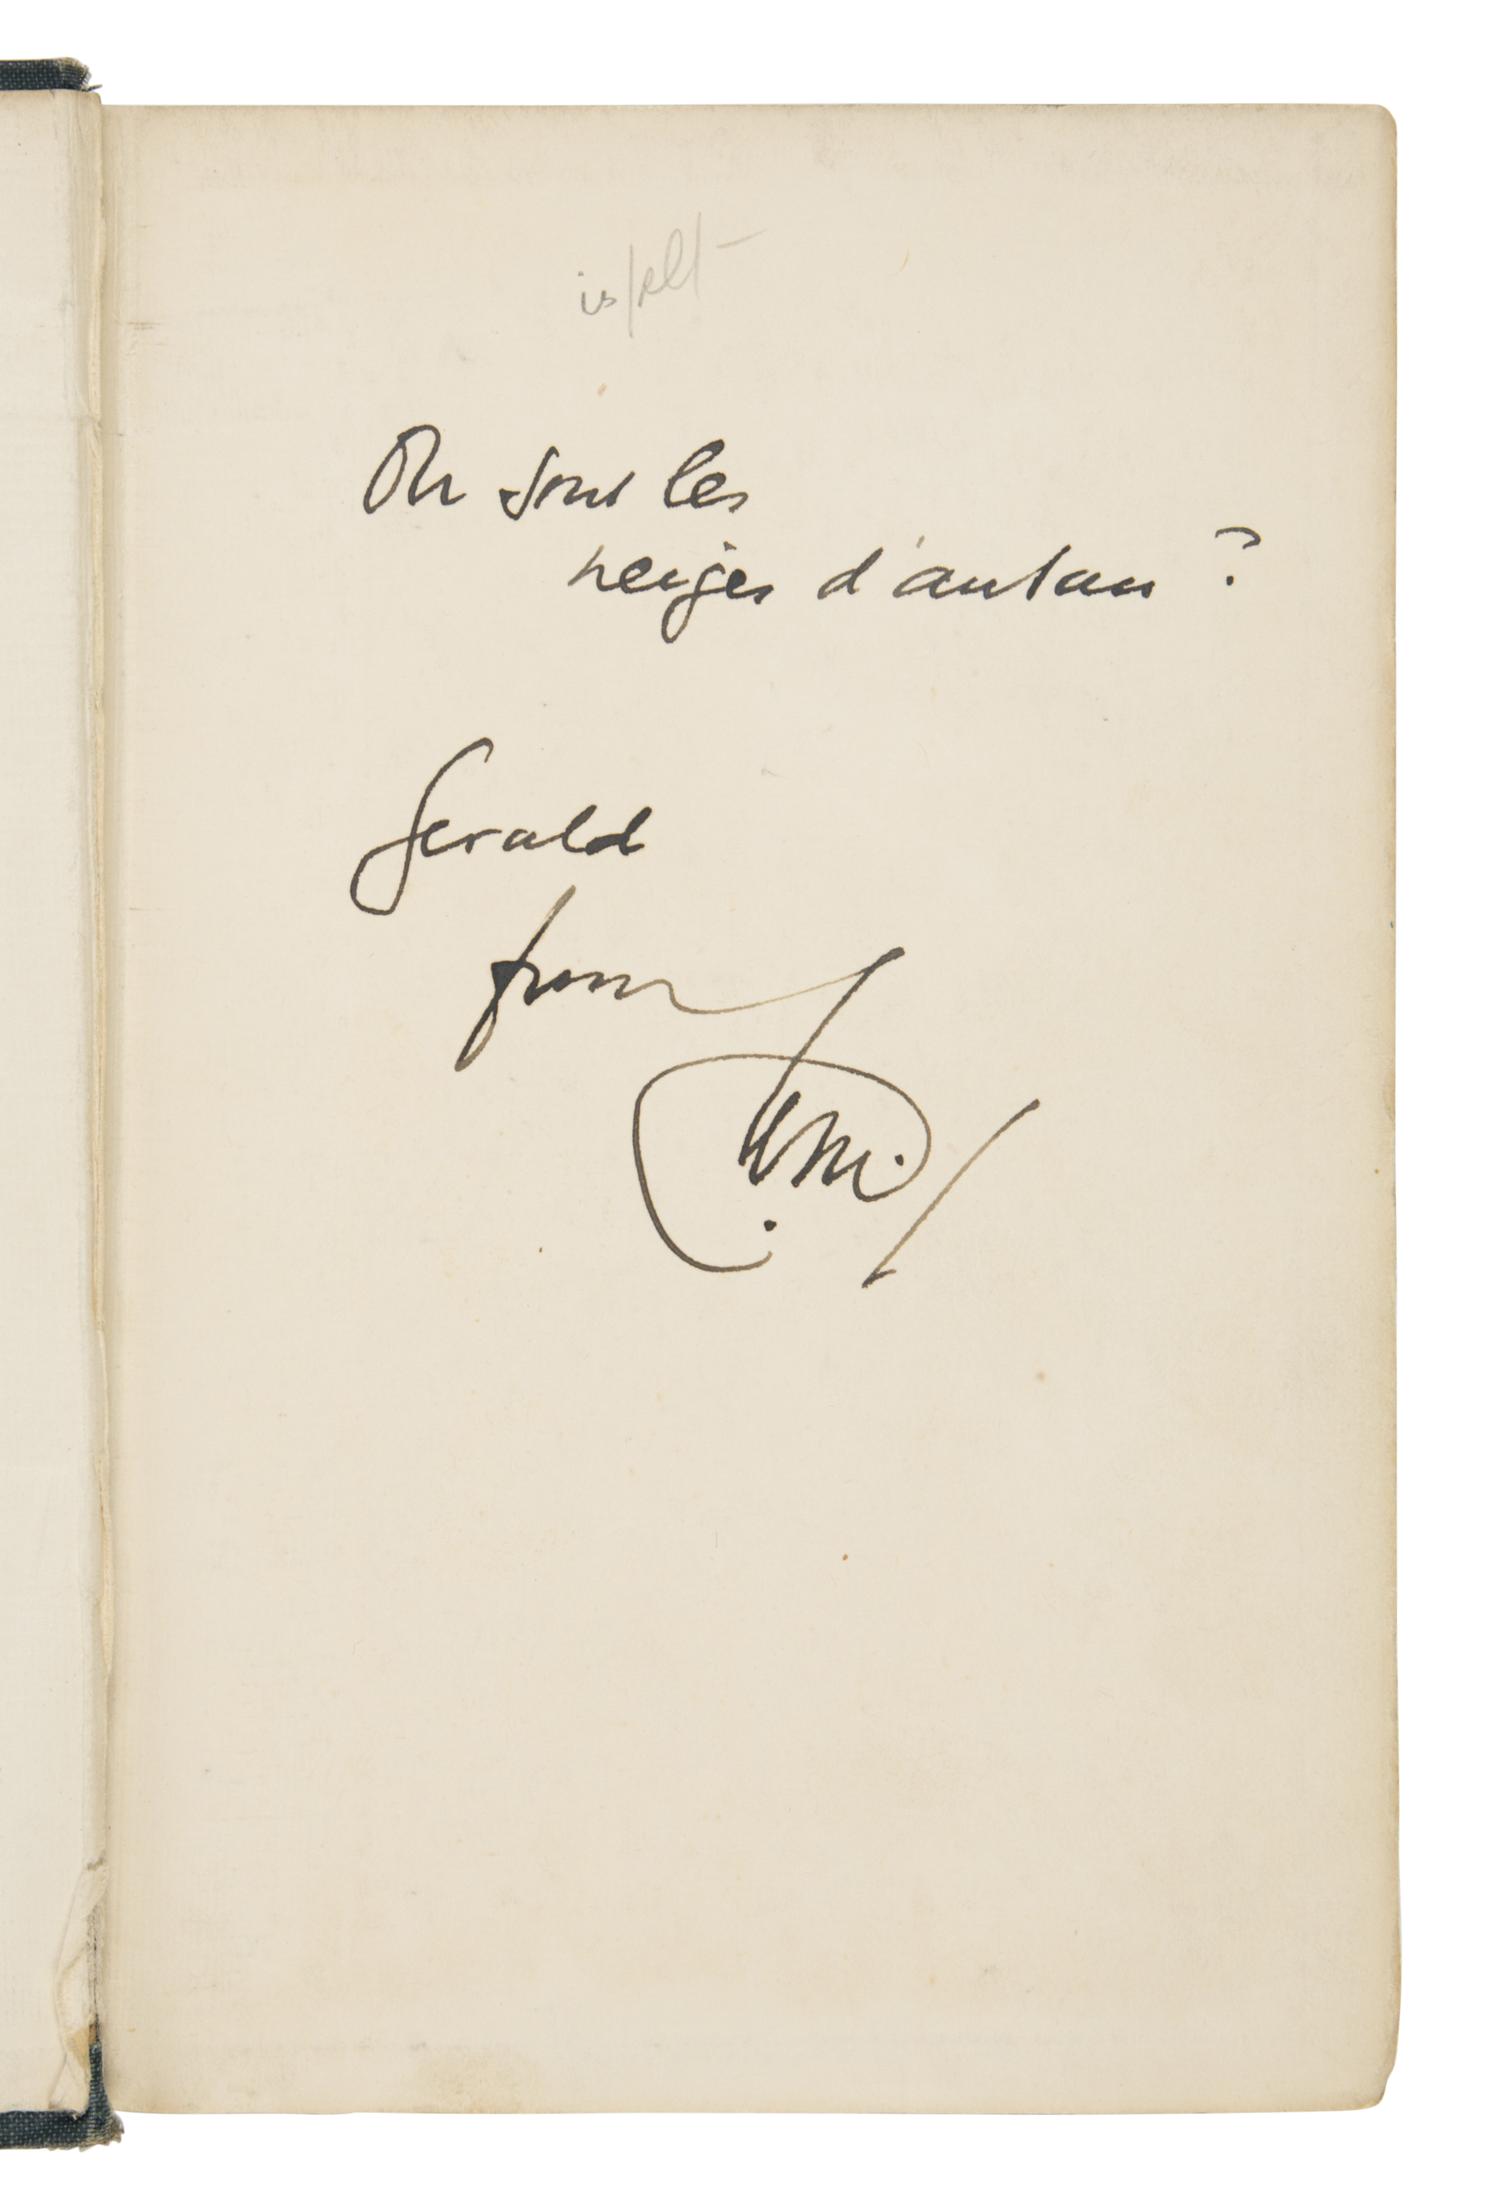 Ou sont les
neiges d'antan ?
Gerald
from